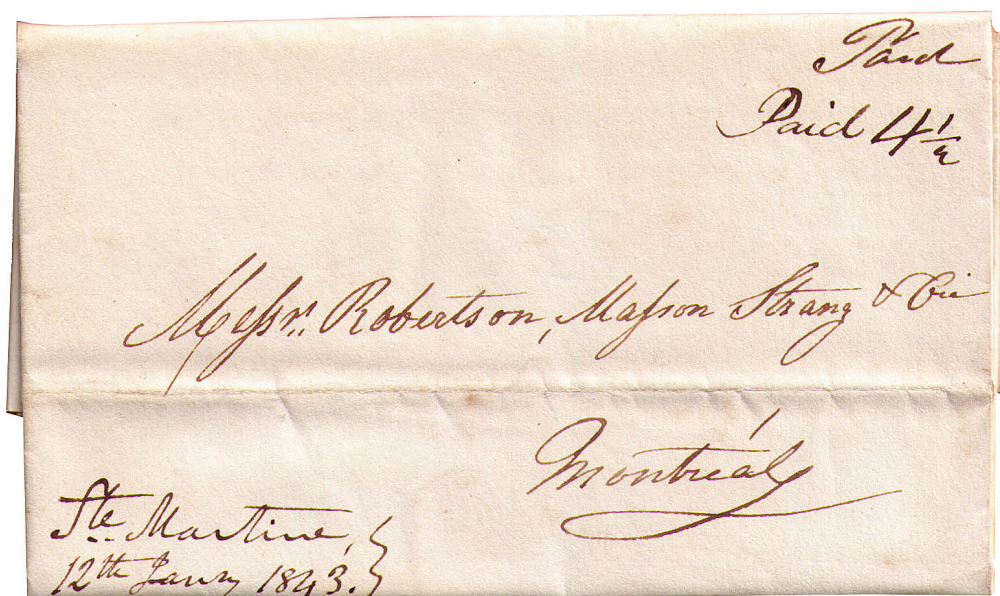 Paid
Paid 4 1/2
Messrs. Robertson, Masson Strang & Cie
Montréal
Ste. Martine,
12th Janry 1843.